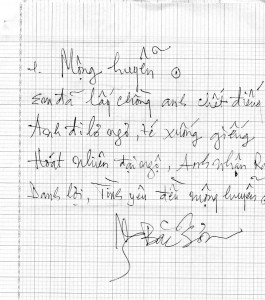 1. Mộng huyễn
Em đã lấy chồng anh chết điếng
Anh đi lỡ ngõ, té xuống giếng
Hoát nhiên đại ngộ, Anh nhận Ra
Danh lợi, Tình yêu đều mộng huyễn
Ng Bắc Sơn